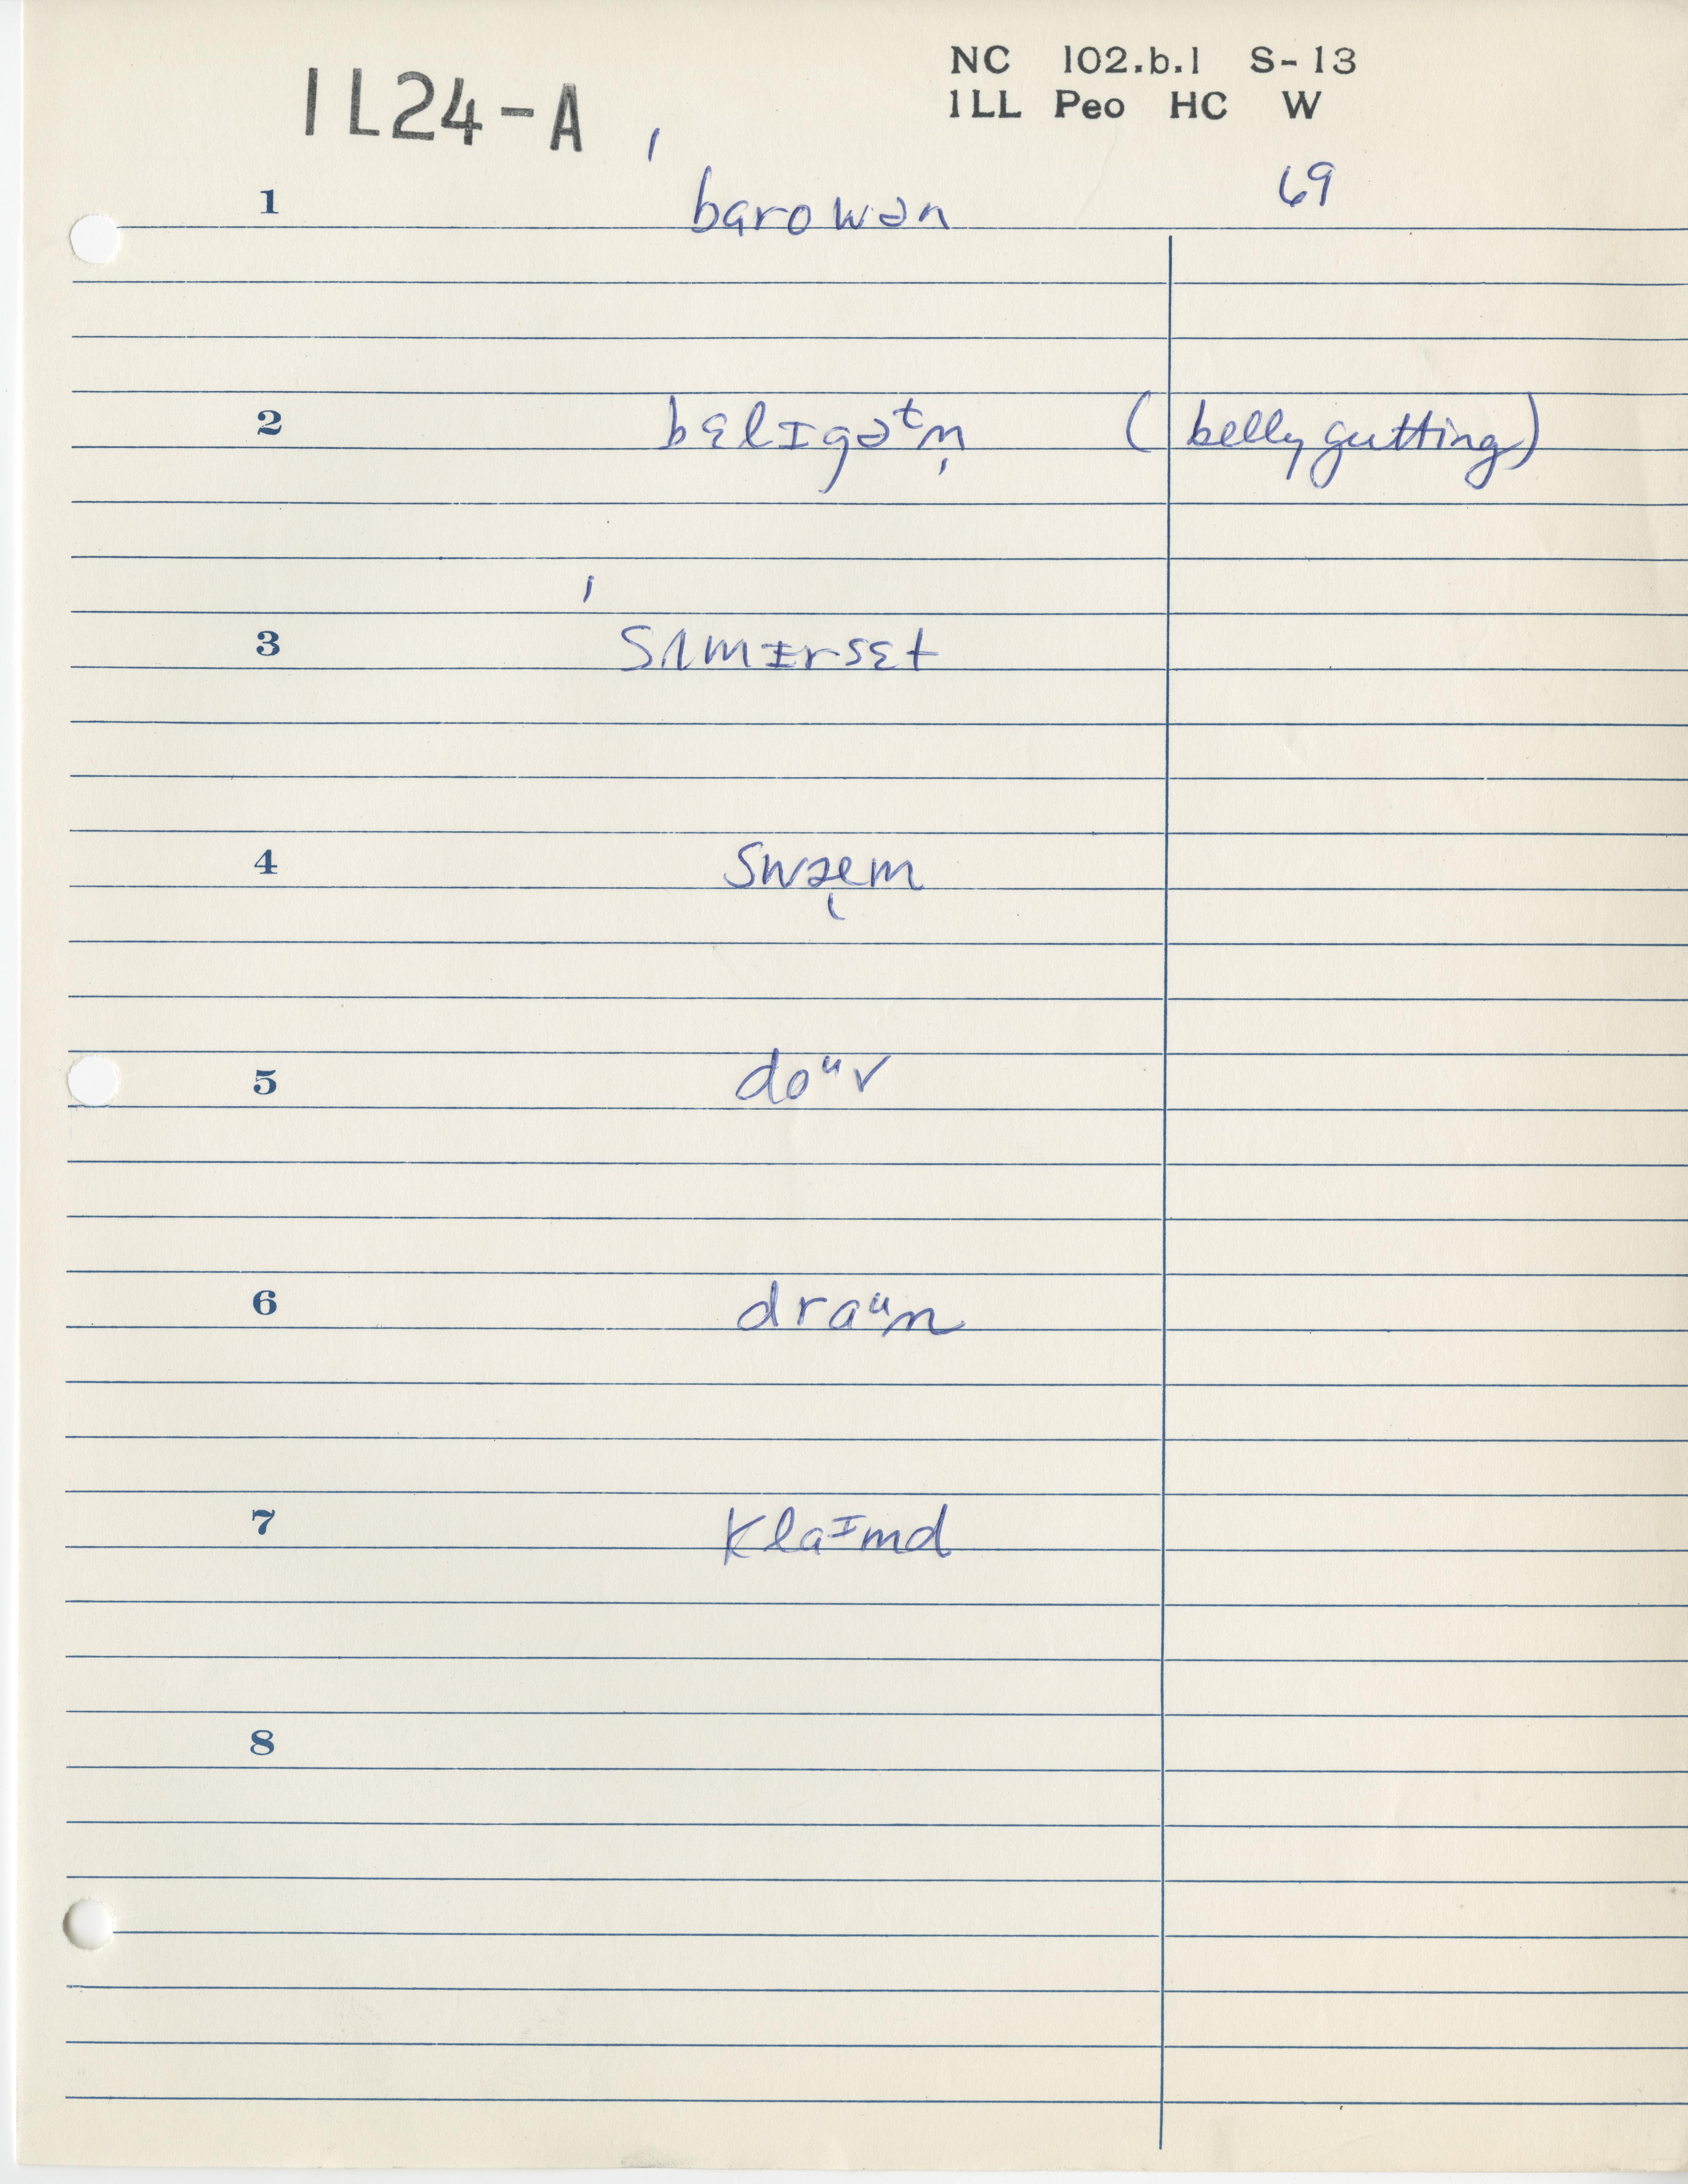 IL24-A
NC 102.b.1 S-13
ILL Peo HC W
69
1 ˈbarowən
2 bɛlɪgəᵗn̩ (belly gutting)
3 ˈsʌmɪrsɛt
4 swæm
5 doᵘv
6 draᵘn
7 klaᶦmd
8